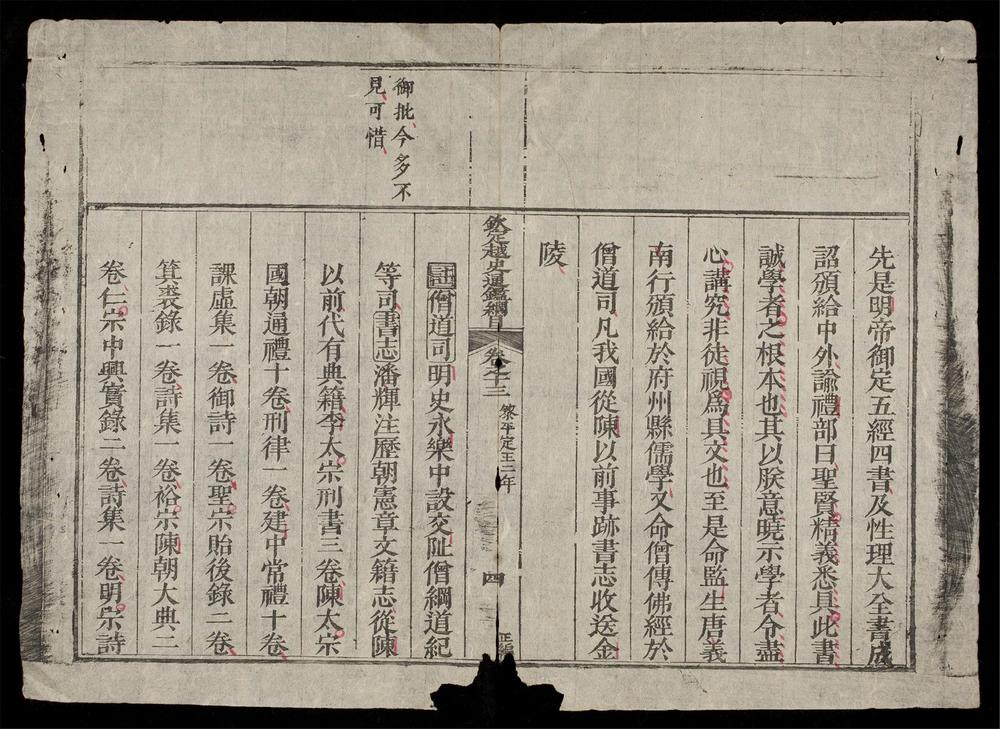 先是明帝御定五經四書及性理大全書成
詔頒給中外諭禮部曰聖賢精義悉具此書
誠學者之根本也其以朕意曉示學者令盡
心講究非徒視爲具文也至是命監生唐義
南行頒給於府州縣儒學又命僧傳佛經於
僧道司凡我國從陳以前事跡書志收送金
陵
欽定越史通鑑綱目
卷之十三
黎平定王二年
四
正編
御批今多不
見可惜
註僧道司明史永樂中設交阯僧綱道紀
等司書志潘輝注歷朝憲章文籍志從陳
以前代有典籍李太宗刑書三卷陳太宗
國朝通禮十卷刑律一卷建中常禮十卷
課虛集一卷御詩一卷聖宗貽後錄二卷
箕裘錄一卷詩集一卷裕宗陳朝大典二
卷仁宗中興實錄二卷詩集一卷明宗詩